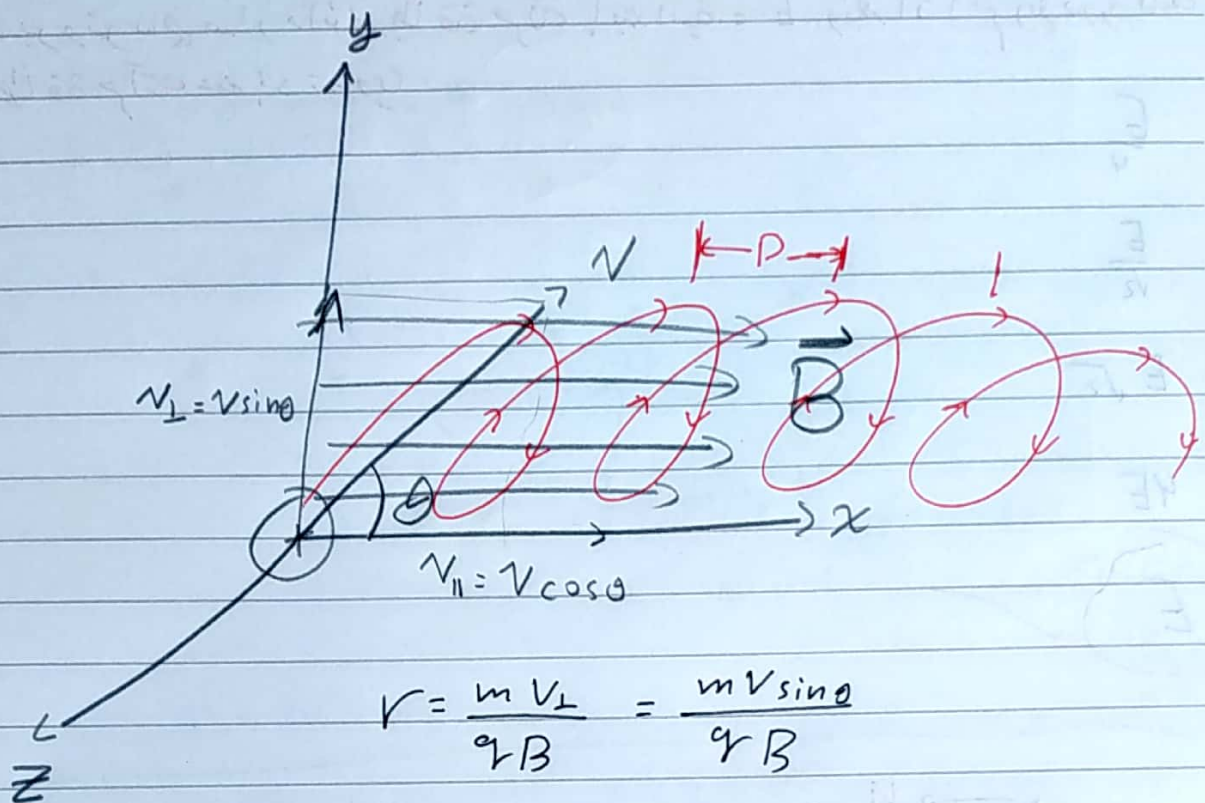 y
V
D
B
V⊥ = Vsinθ
θ
x
V∥ = Vcosθ
r = mV⊥/qB = mVsinθ/qB
Z